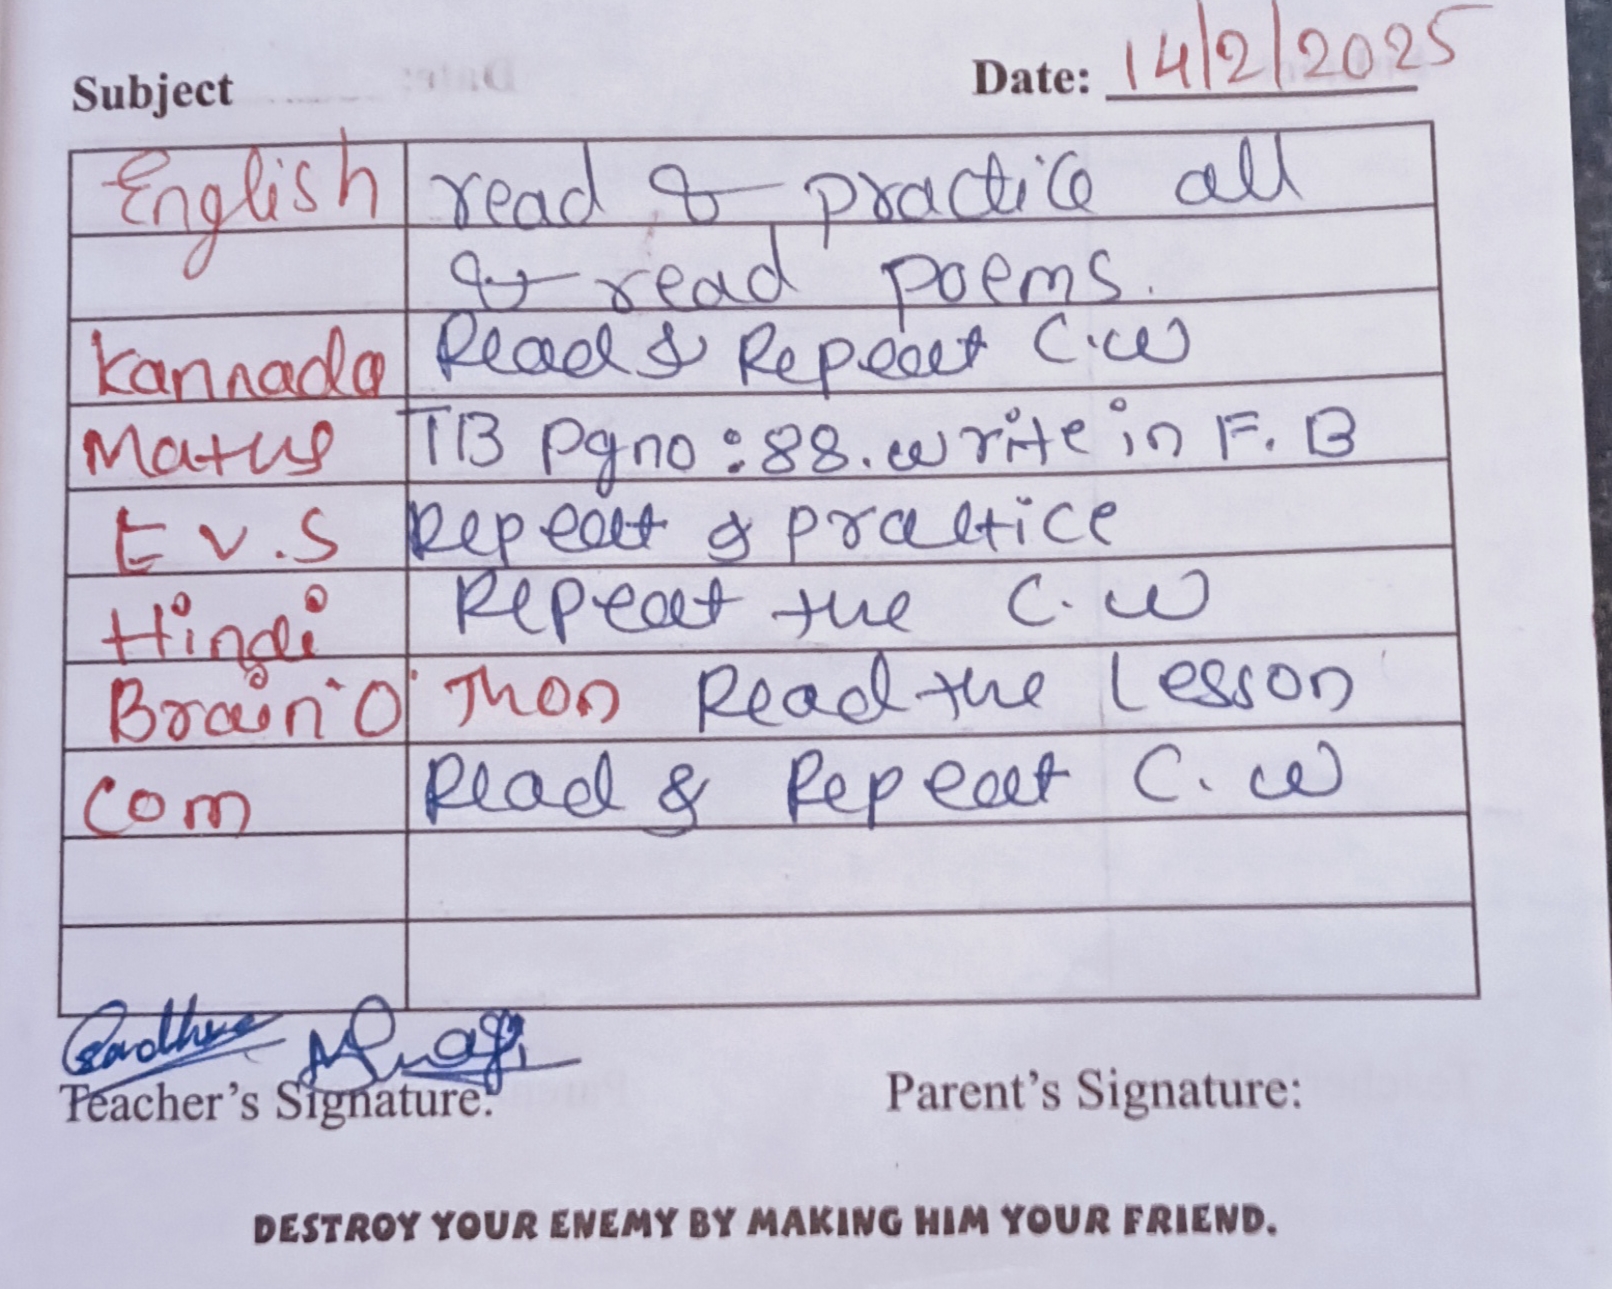 Subject Date: 14/2/2025
English read & practice all
& read poems.
Kannada Read & Repeat C.W
Maths TB Pg no : 88. write in F. B
E v.s Repeat & practice
Hindi Repeat the C. W
Brain "O" Thon Read the Lesson
Com Read & Repeat C. W
Teacher's Signature: Parent's Signature:
DESTROY YOUR ENEMY BY MAKING HIM YOUR FRIEND.